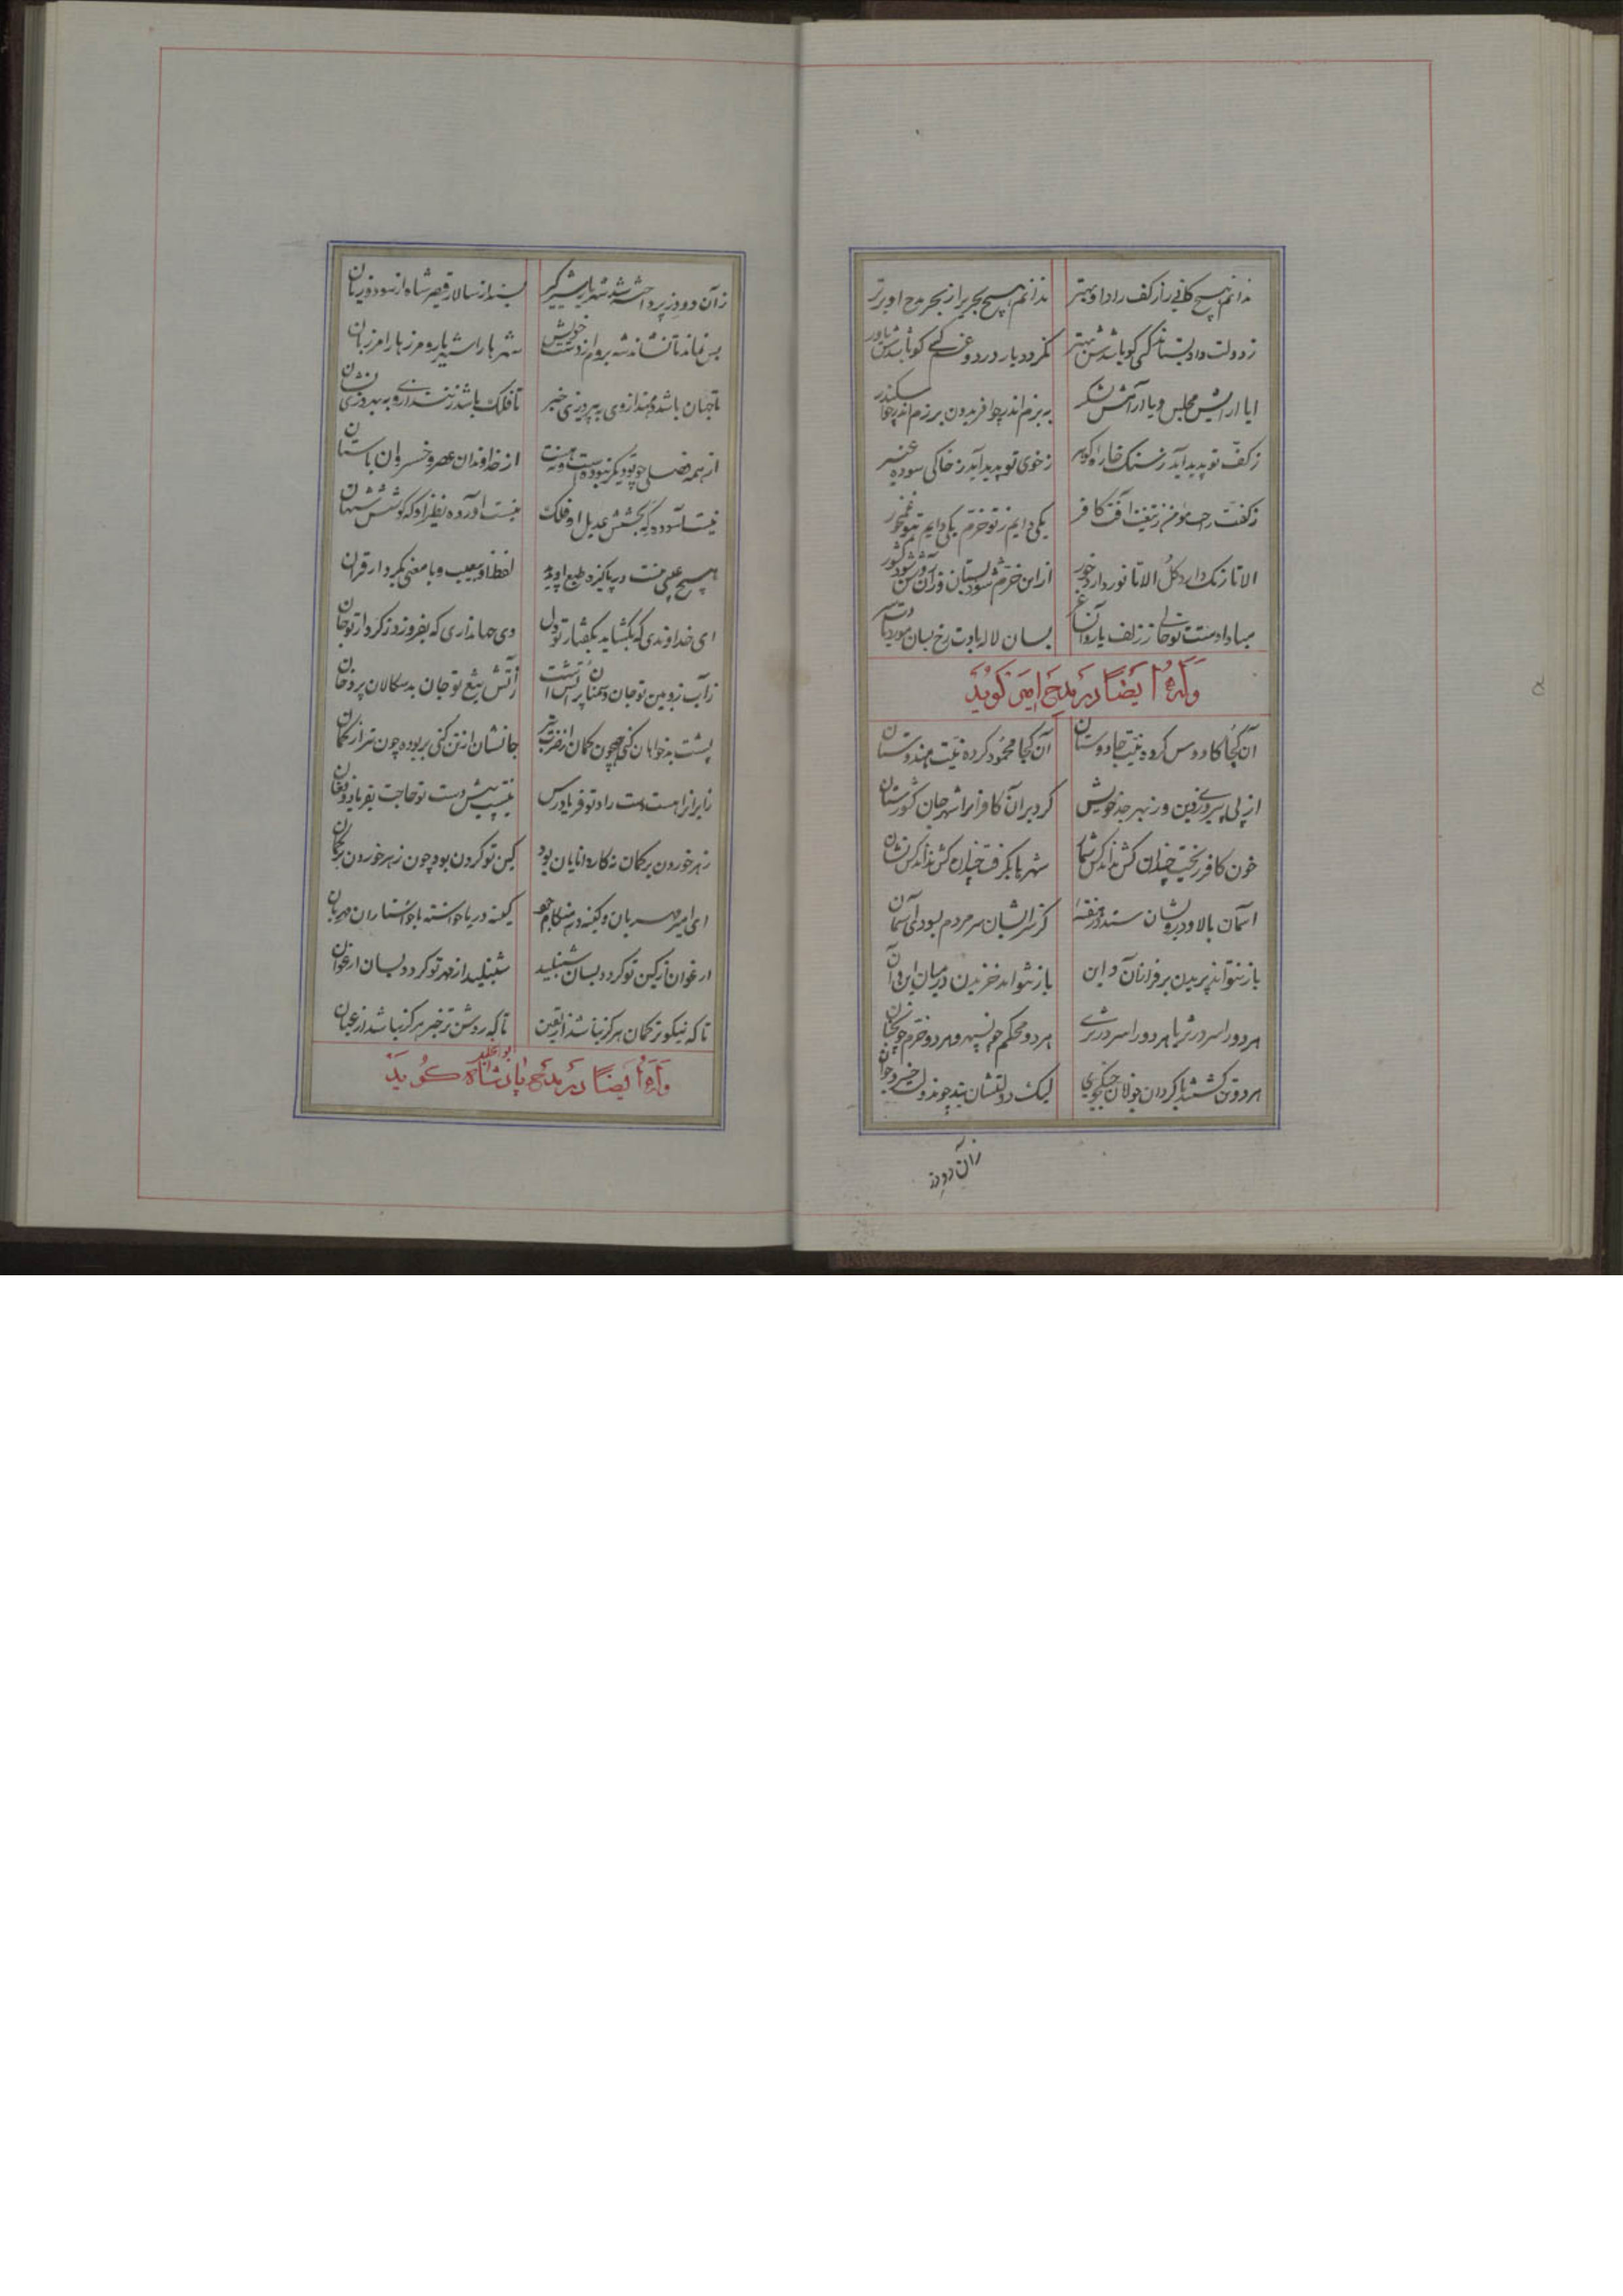 ندانم هیچ کانی را ز کف راد او بهتر ندانم هیچ بحری را ز بحر مدح او برتر
ز دولت داد بستاند کسی کو باشدش مهتر نگردد یار درد و غم کسی کو باشدش یاور
ایا آرایش مجلس و یا آرامش لشکر به بزم اندر چو افریدون برزم اندر چو اسکندر
ز کف تو پدید آید ز سنگ خاره گوهر ز خوی تو پدید آید ز خاکی سوده عنبر
ز کفت راحت مؤمن ز تیغت آفت کافر یکی دایم ز تو خرم یکی دایم ز تو غمخور
الا تا رنگ دارد گل الا تا نور دارد خور از این خرم شود بستان وز آن روشن شود کشور
مبادا دست تو خالی ز زلف یار و از ساغر بسان لاله بادت رخ بسان مورد بادت سر
وله ایضا در مدح امیر گوید
آن کجا کاوس کرده نیت جادوستان آن کجا محمود کرده نیت هندوستان
از پی پیروزی دین وز بهر جد خویش کرد بر آن کافران شهر جان گورستان
خون کافر ریخت چندان کش نداند کس شمار شهرها بگرفت چندان کش نداند کس نشان
آسمان بالا و در وی شان ستد در هفته کز سر ایشان سر مردم بسودی آسمان
باز نتواند پریدن بر فراز آن و این باز نتواند خزیدن در میان این و آن
هر دو را سر در ثریا هر دو را سر در ثری هر دو محکم چون سپهر و هر دو خرم چون جنان
هر دو تن گشتند با گردان جولان جنگجوی لیک دولتشان بند چونان دولت خسرو جوان
زان دو دز
زآن دو دز پرداخته شد شهریار شیرگیر بستد از سالار قیصر شاه از سود و زیان
بس نماند تا نشاند شه بروم از دست خویش شهریار اشهریار و مرزبان را مرزبان
تا جهان باشد مبندازوی به پیروزی خبر تا فلک باشد ز تندازو به بهروزی نشان
از همه فضلی چو تو دیگر نبوده است و نه هست از خداوندان عصر و خسروان باستان
نیست آسوده گه بخشش عدیل او فلک نیست آورده نظیر او گه کوشش جهان
هیچ عیبی نیست در پاکیزه طبع او پدید لفظ او بی عیب و با معنی بکردار قران
ای خداوندی که بگشاید بگفتار تو دل وی جهانداری که بفروزد ز کردار تو جان
ز آب زوبین تو جان دشمنان پر آتش است ز آتش تیغ تو جان بدسگالان پر دخان
پشت بدخواهان کنی همچون کمان از ضرب تیر جانشان از تن کنی پریده چون تیر از کمان
زایران را هست دست راد تو فریادرس نیست پیش دست تو حاجت بفریاد و فغان
زهر خوردن بر گمان نه کار دانایان بود کین تو کردن بود چون زهر خوردن بر گمان
ای امیر مهربان و کینه ور هنگام جود کینه ور با خواسته با خواستاران مهربان
ارغوان از کین تو گردد بسان شنبلید شنبلید از مهر تو گردد بسان ارغوان
تا که نیکوتر گمان هرگز نباشد از یقین تا که روشن تر خبر هرگز نباشد از عیان
وله ایضا در مدح پادشاه ابوالخلیل گوید